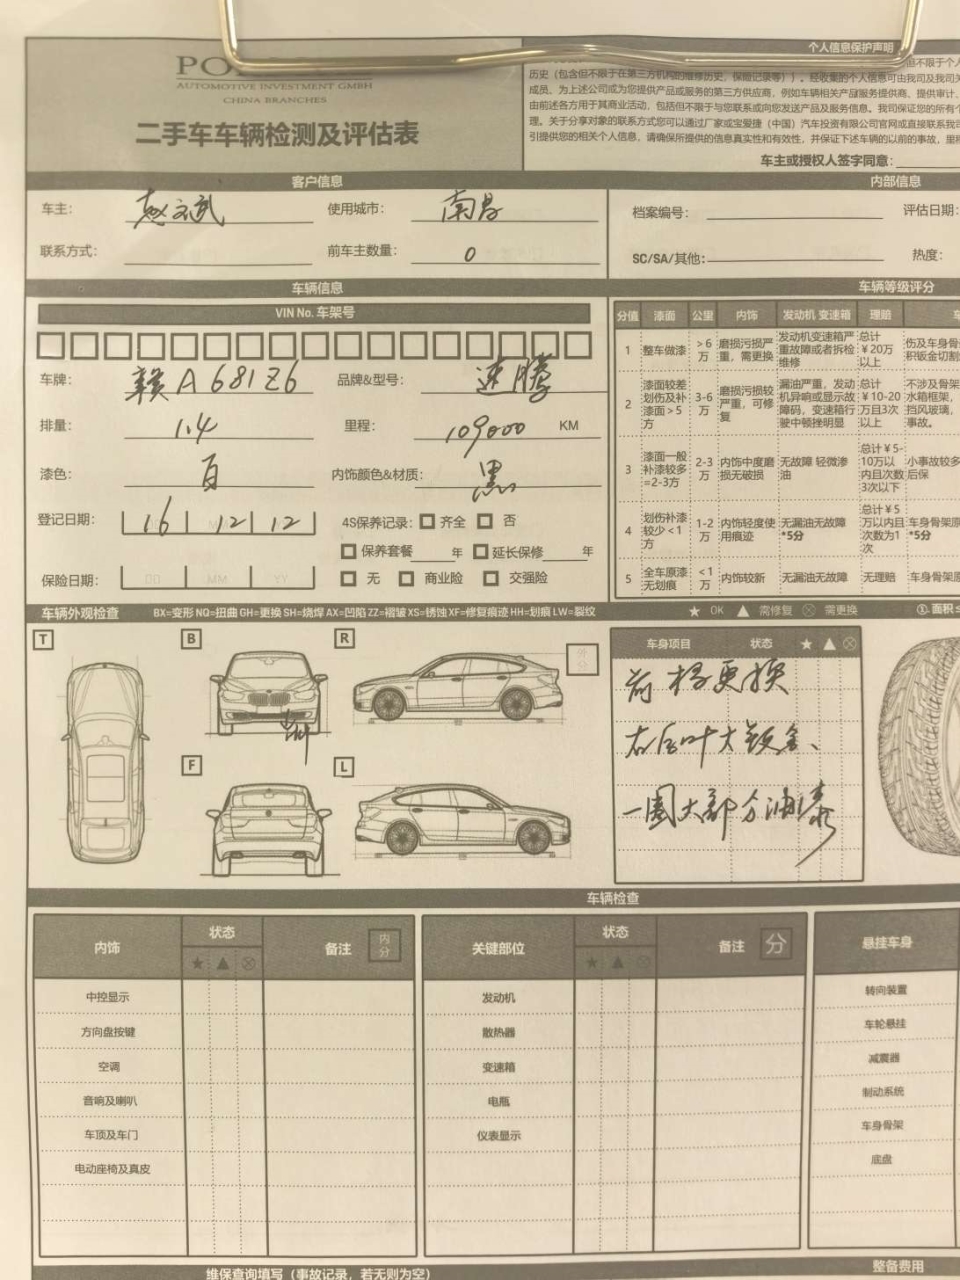 AUTOMOTIVE INVESTMENT GMBH
CHINA BRANCHES
二手车车辆检测及评估表
个人信息保护声明
历史（包含但不限于在第三方机构的维修历史，保险记录等））。经收集的个人信息可由我司及我司关
成员，为上述公司或为您提供产品或服务的第三方供应商，例如车辆相关产品服务提供商、提供审计、
由前述各方用于其商业活动，包括但不限于与您联系或向您发送产品及服务信息。我司保证您的所有个
理。关于分享对象的联系方式您可以通过厂家或宝爱捷（中国）汽车投资有限公司官网或直接联系我司
引提供您的相关个人信息，请确保所提供的信息真实性和有效性，并保证下述车辆的以前的事故，里程
车主或授权人签字同意：
客户信息
内部信息
车主： 赵文斌 使用城市： 南昌
档案编号： 评估日期：
联系方式： 前车主数量： 0
SC/SA/其他： 热度：
车辆信息
车辆等级评分
VIN No. 车架号
车牌： 赣A681Z6 品牌&型号： 速腾
排量： 1.4 里程： 109000 KM
漆色： 白 内饰颜色&材质： 黑
登记日期： 16 12 12 4S保养记录： 齐全 否
保养套餐 年 延长保修 年
保险日期： DD MM YY 无 商业险 交强险
分值 漆面 公里 内饰 发动机 变速箱 理赔
1 整车做漆 >6万 磨损污损严重，需更换 发动机变速箱严重故障或者拆检维修 总计¥20万以上 伤及车身骨
积钣金切割
2 漆面较差划伤及补漆面>5方 3-6万 磨损污损较严重，可修复 漏油严重，发动机异响或显示故障码，变速箱行驶中顿挫明显 总计¥10-20万且3次以上 不涉及骨架
水箱框架，
挡风玻璃，
事故。
3 漆面一般补漆较多=2-3方 2-3万 内饰中度磨损无破损 无故障 轻微渗油 总计¥5-10万以内且次数3次以下 小事故较多
后保
4 划伤补漆较少<1方 1-2万 内饰轻度使用痕迹 无漏油无故障 *5分 总计¥5万以内且次数为1次 车身骨架原
*5分
5 全车原漆无划痕 <1万 内饰较新 无漏油无故障 无理赔 车身骨架原
车辆外观检查 BX=变形 NQ=扭曲 GH=更换 SH=烧焊 AX=凹陷 ZZ=褶皱 XS=锈蚀 XF=修复痕迹 HH=划痕 LW=裂纹 ★ OK ▲ 需修复 ⊗ 需更换 ①.面积≤
T B R 外分
F L
车身项目 状态 ★ ▲ ⊗
前杠更换
右后叶大钣金、
一圈大部分油漆
车辆检查
内饰 状态 ★ ▲ ⊗ 备注 内分
关键部位 状态 ★ ▲ ⊗ 备注 分
悬挂车身
中控显示 发动机 转向装置
方向盘按键 散热器 车轮悬挂
空调 变速箱 减震器
音响及喇叭 电瓶 制动系统
车顶及车门 仪表显示 车身骨架
电动座椅及真皮 底盘
维保查询填写（事故记录，若无则为空）
整备费用